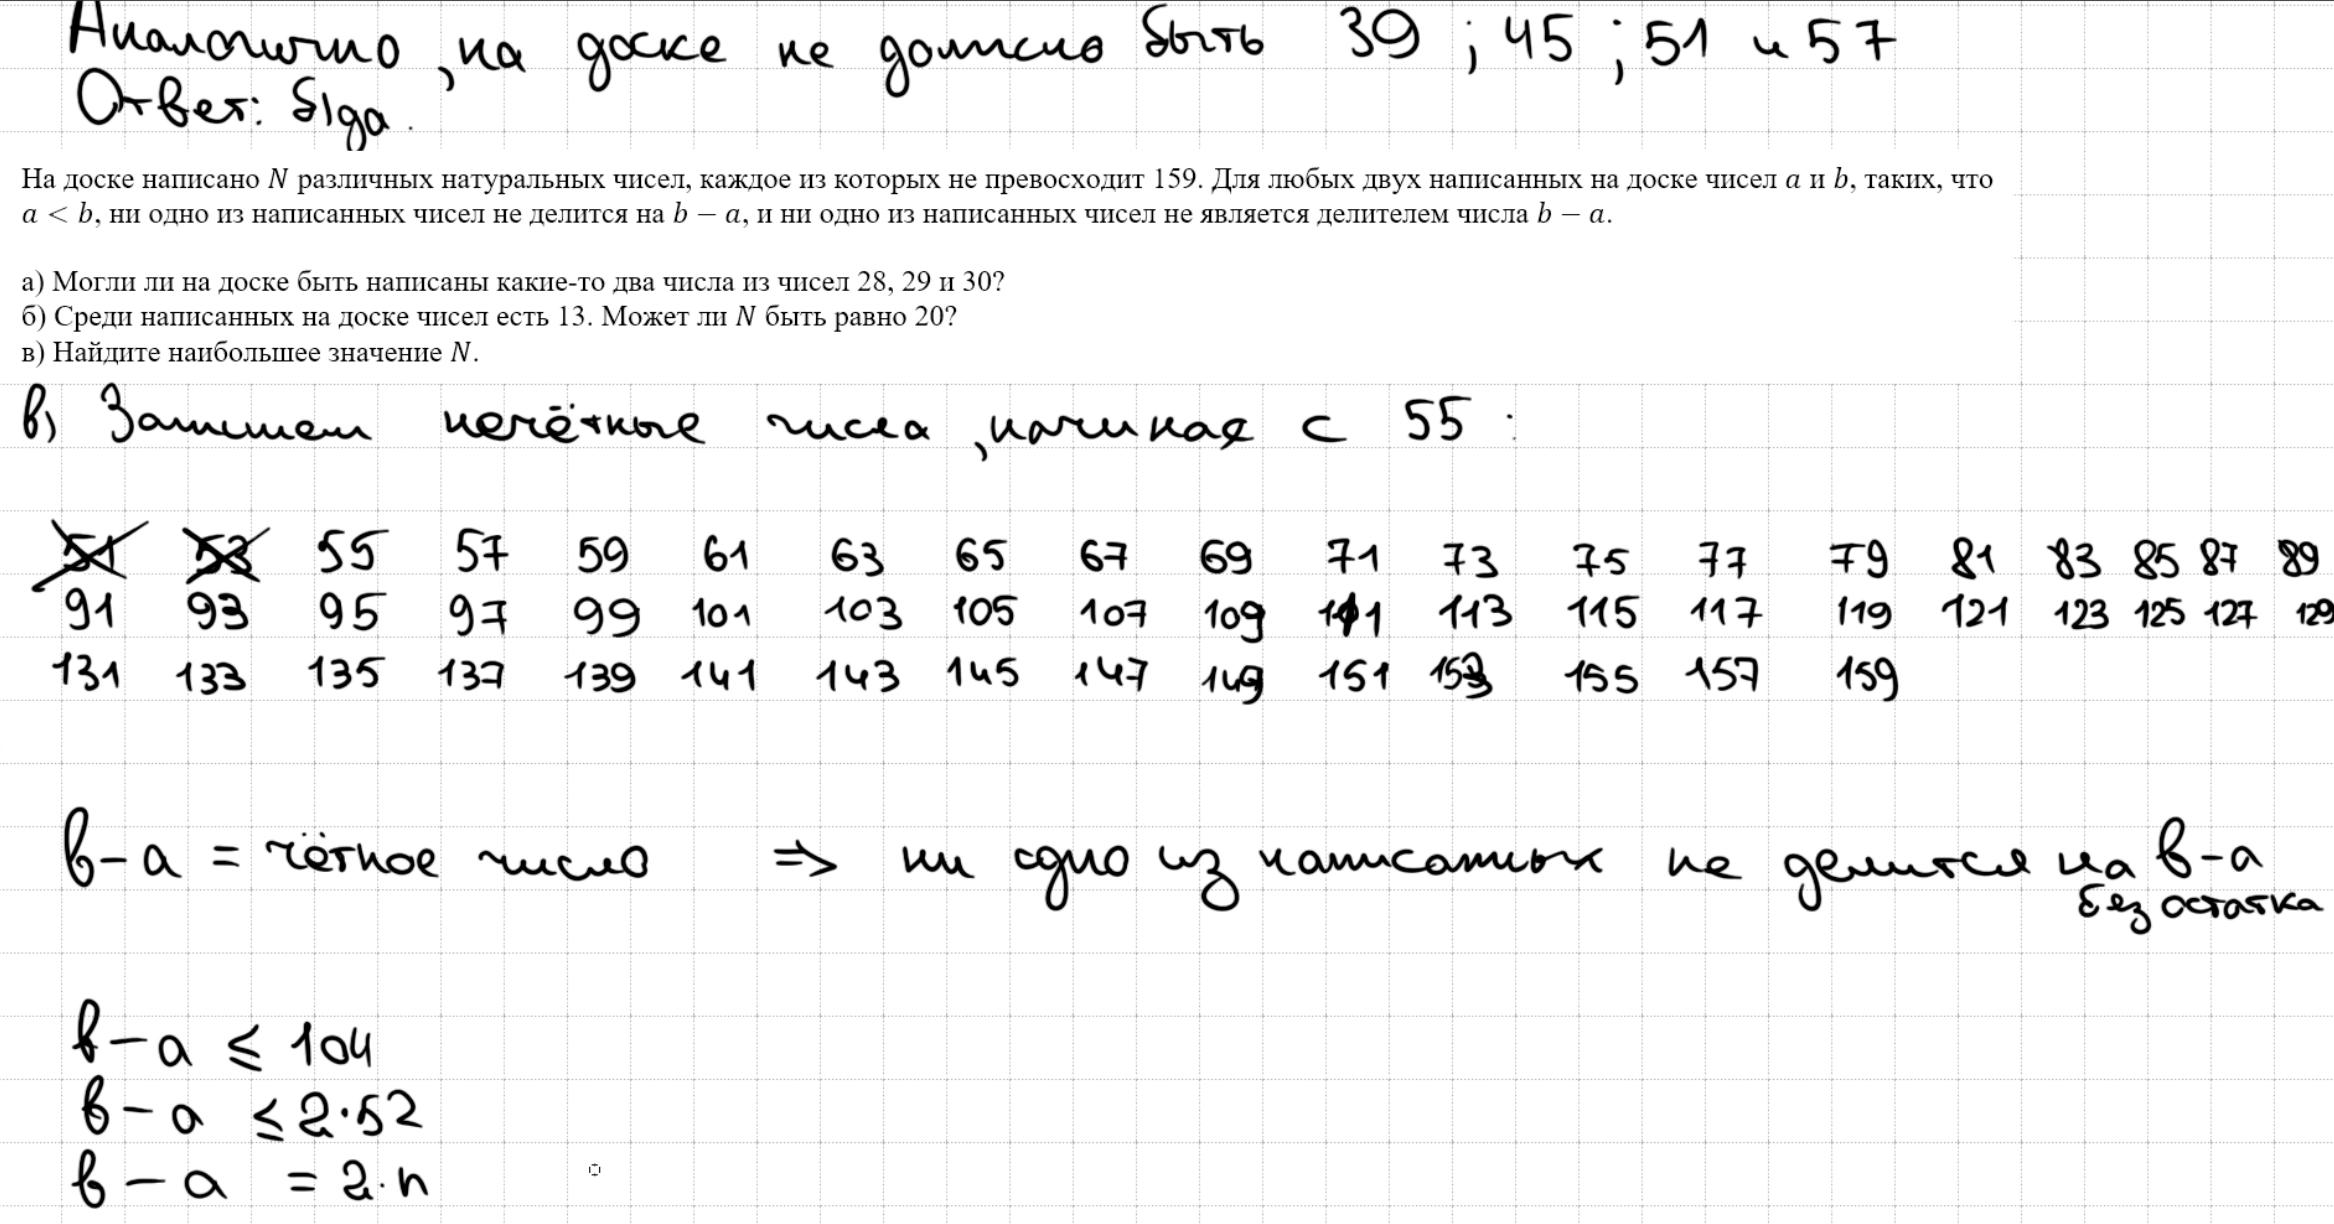 Аналогично, на доске не должно быть 39; 45; 51 и 57
Ответ: б) да.
На доске написано N различных натуральных чисел, каждое из которых не превосходит 159. Для любых двух написанных на доске чисел a и b, таких, что
a < b, ни одно из написанных чисел не делится на b − a, и ни одно из написанных чисел не является делителем числа b − a.
а) Могли ли на доске быть написаны какие-то два числа из чисел 28, 29 и 30?
б) Среди написанных на доске чисел есть 13. Может ли N быть равно 20?
в) Найдите наибольшее значение N.
в) Запишем нечётные числа, начиная с 55:
51 53 55 57 59 61 63 65 67 69 71 73 75 77 79 81 83 85 87 89
91 93 95 97 99 101 103 105 107 109 111 113 115 117 119 121 123 125 127 129
131 133 135 137 139 141 143 145 147 149 151 153 155 157 159
b − a = чётное число => ни одно из написанных не делится на b − a
без остатка
b − a ≤ 104
b − a ≤ 2·52
b − a = 2·n